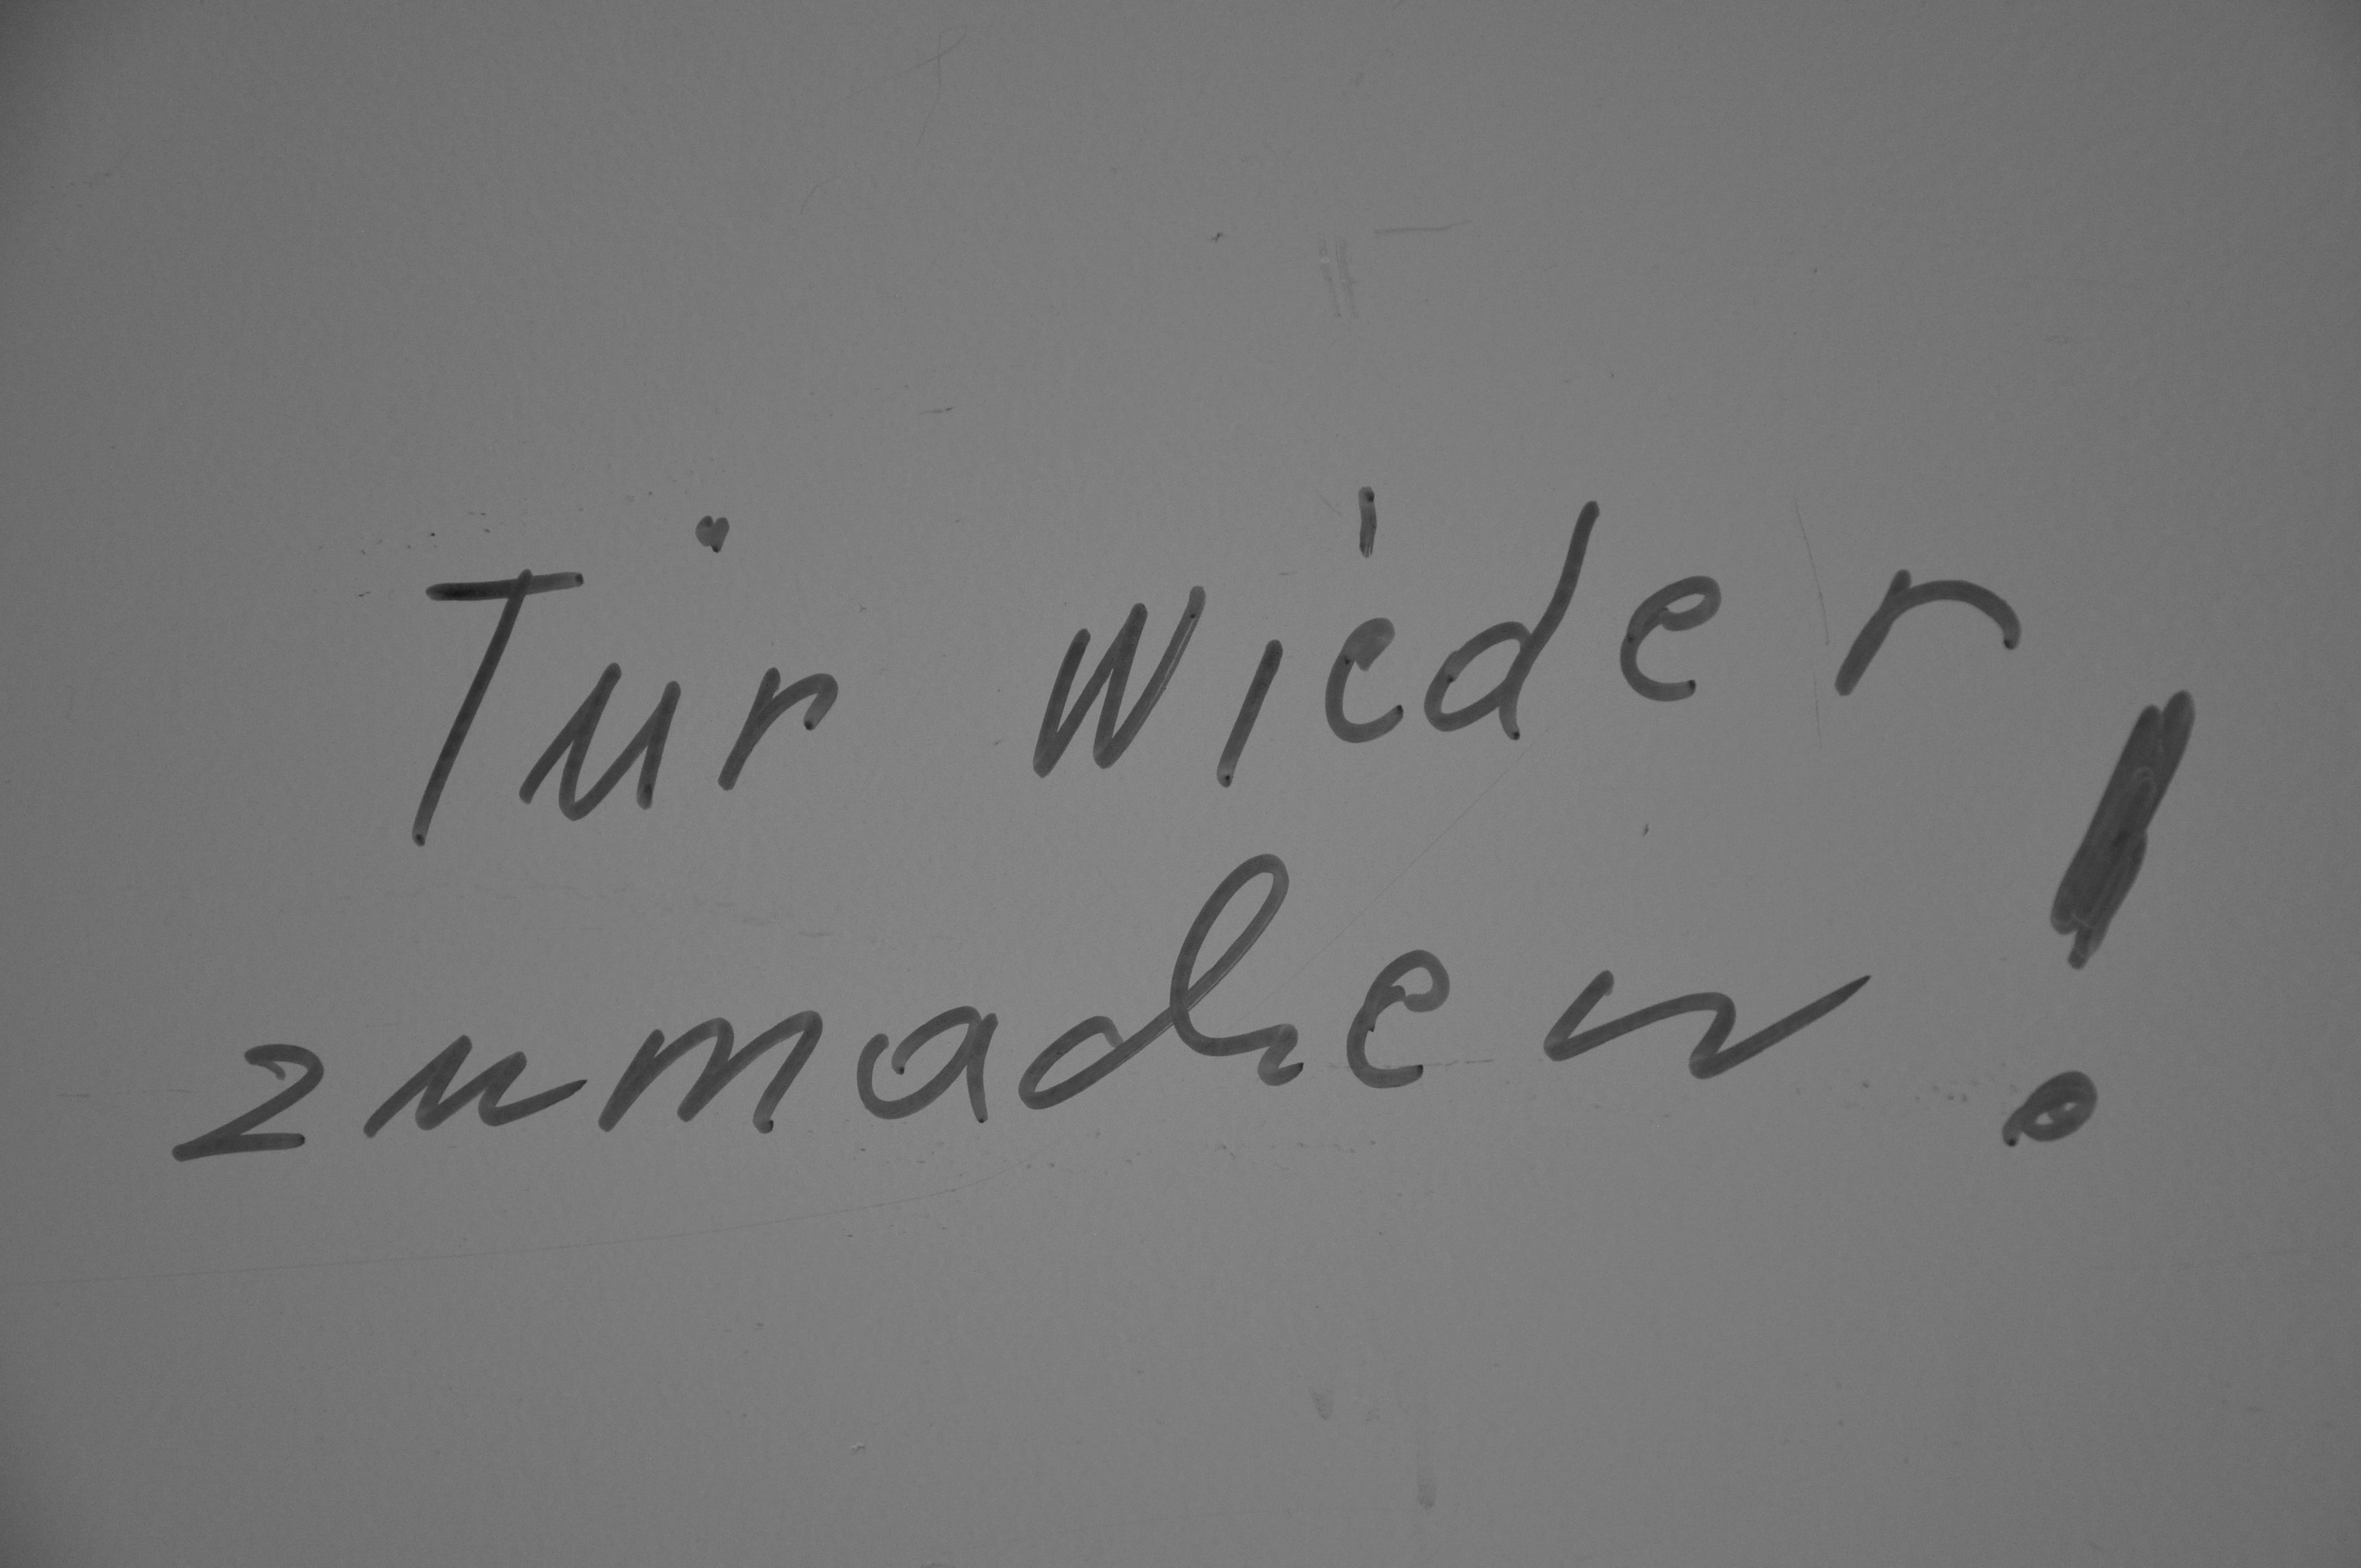 Tür wieder
zumachen!